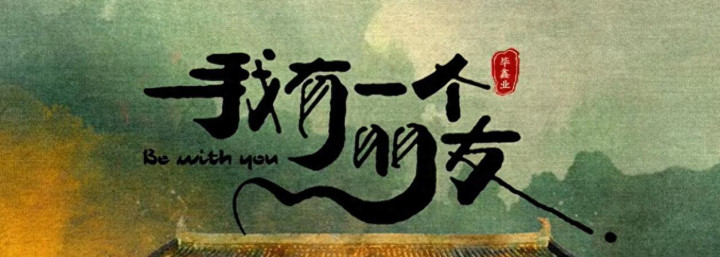 我有一个
毕鑫业
朋友
Be with you